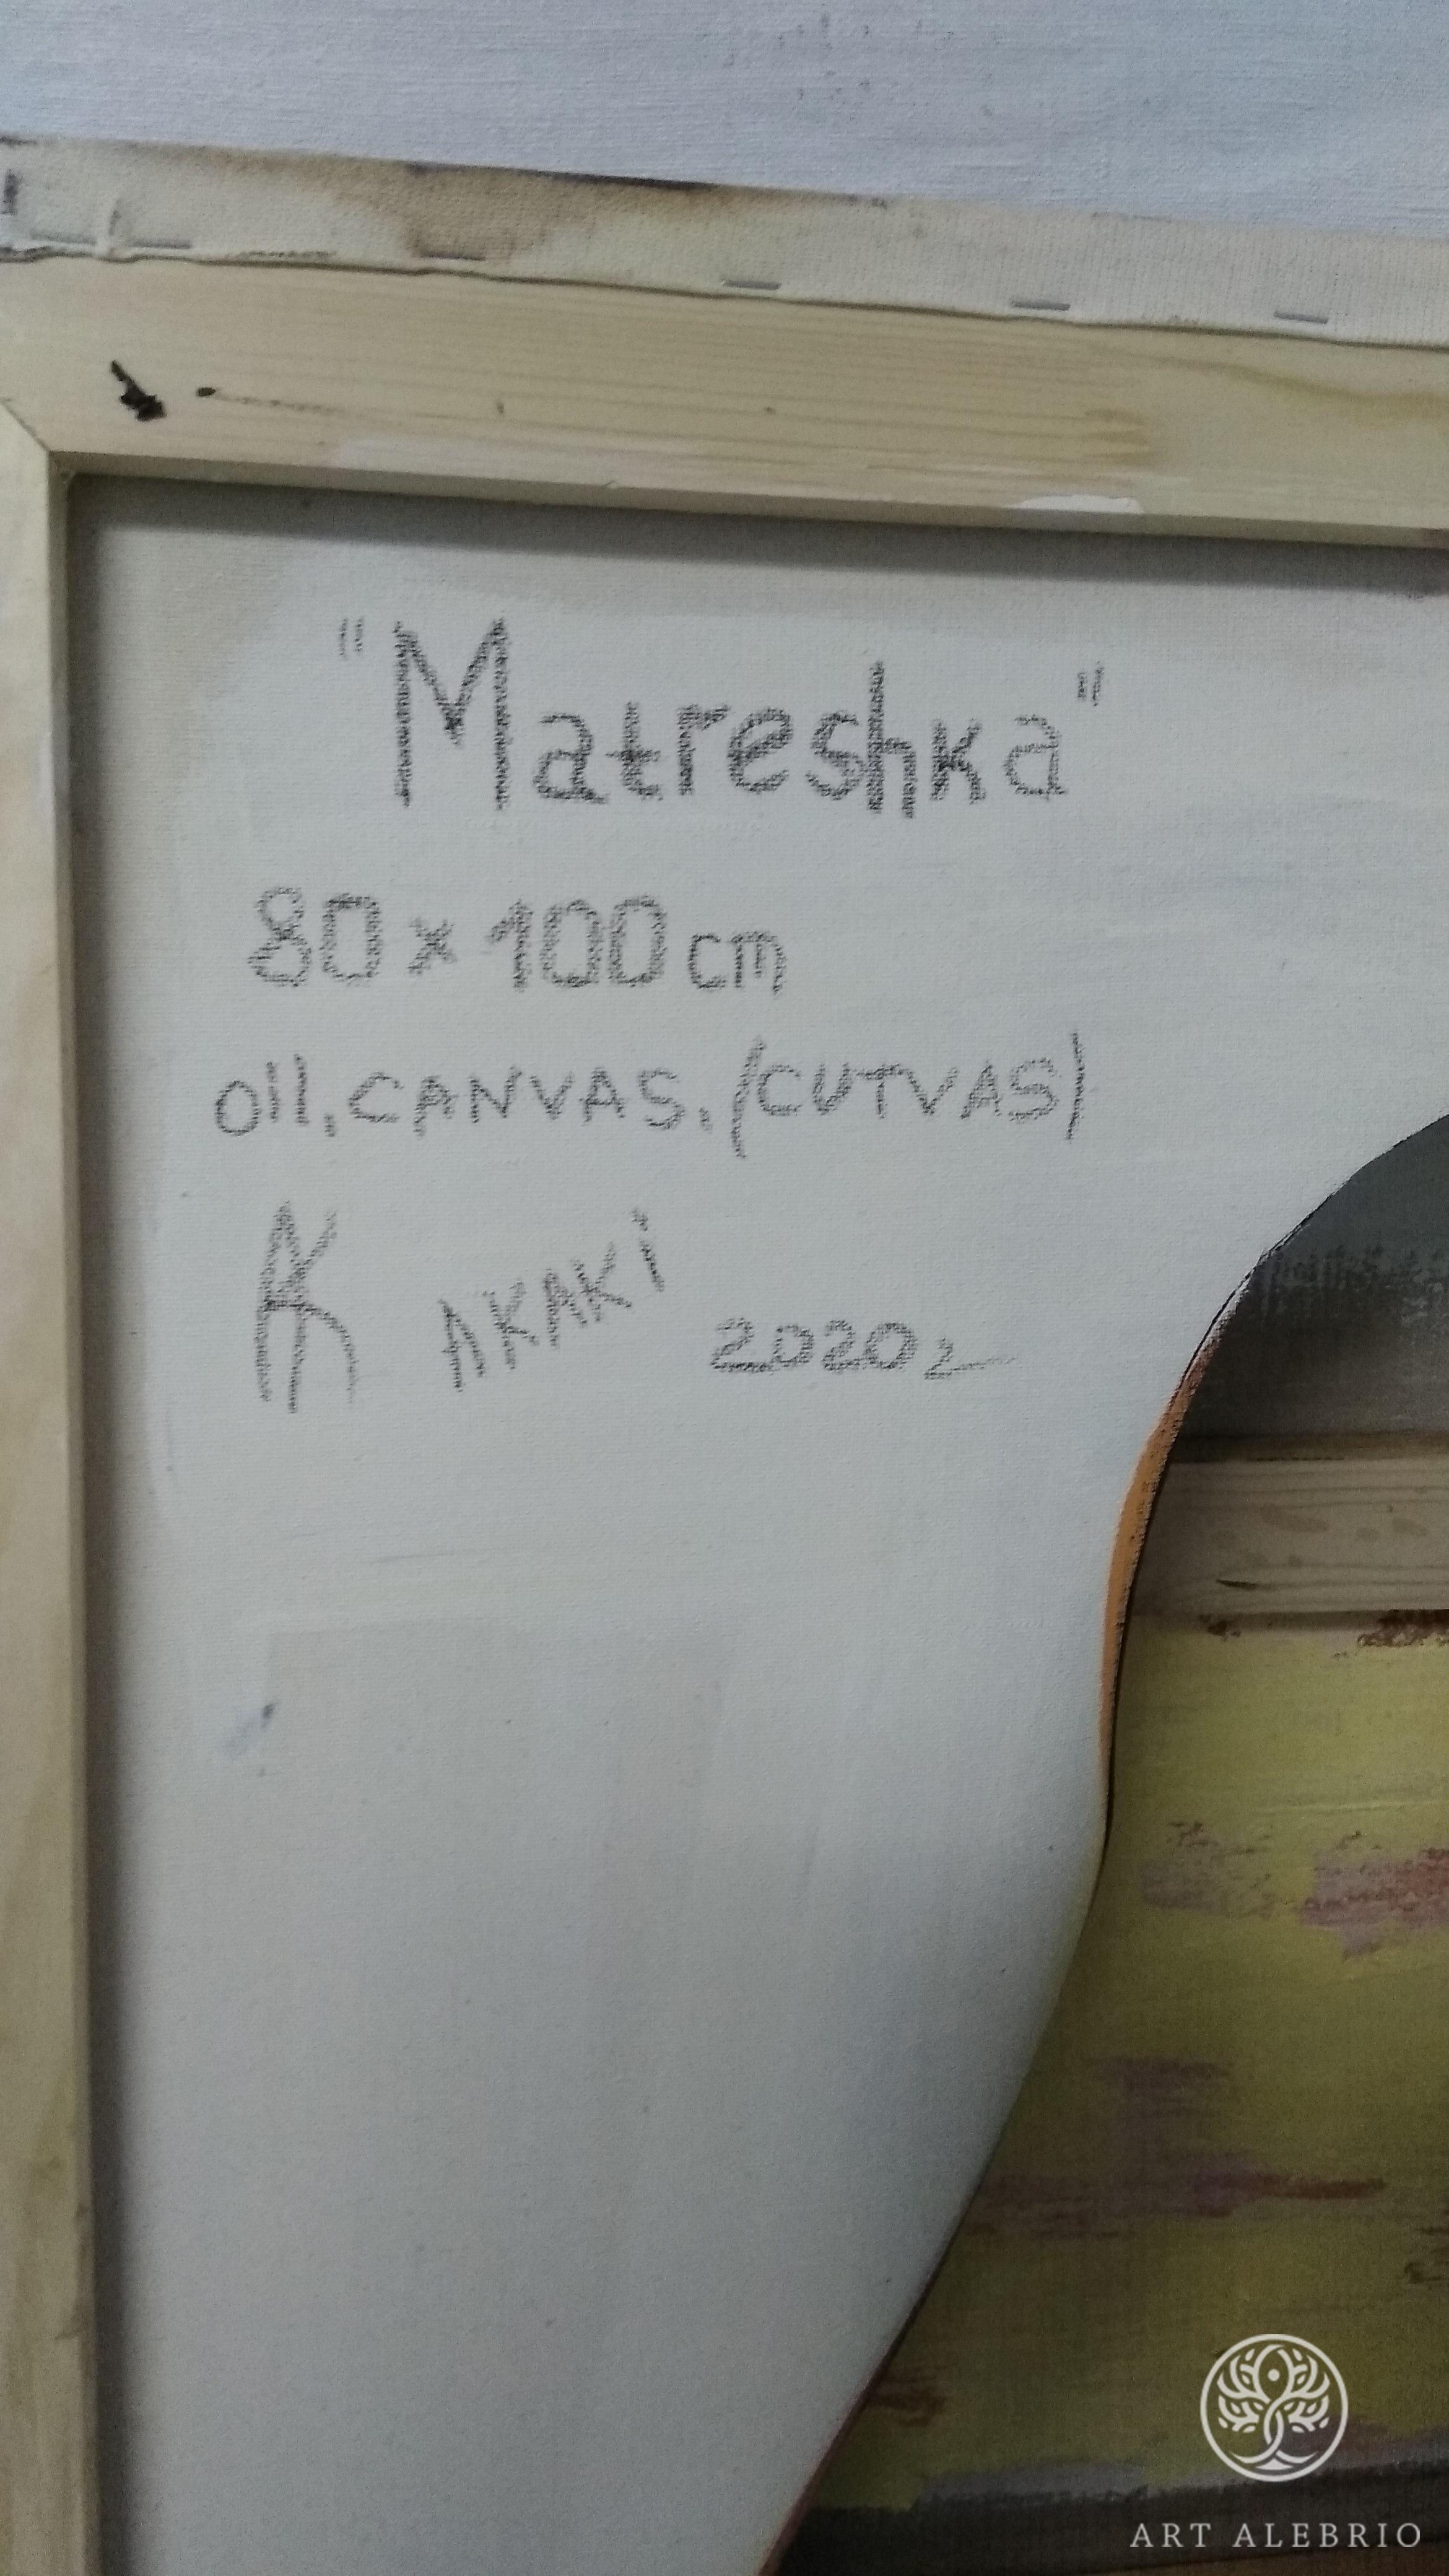 "Matreshka"
80 × 100 cm
Oil, CANVAS, /CUTVAS/
2020г
ART ALEBRIO